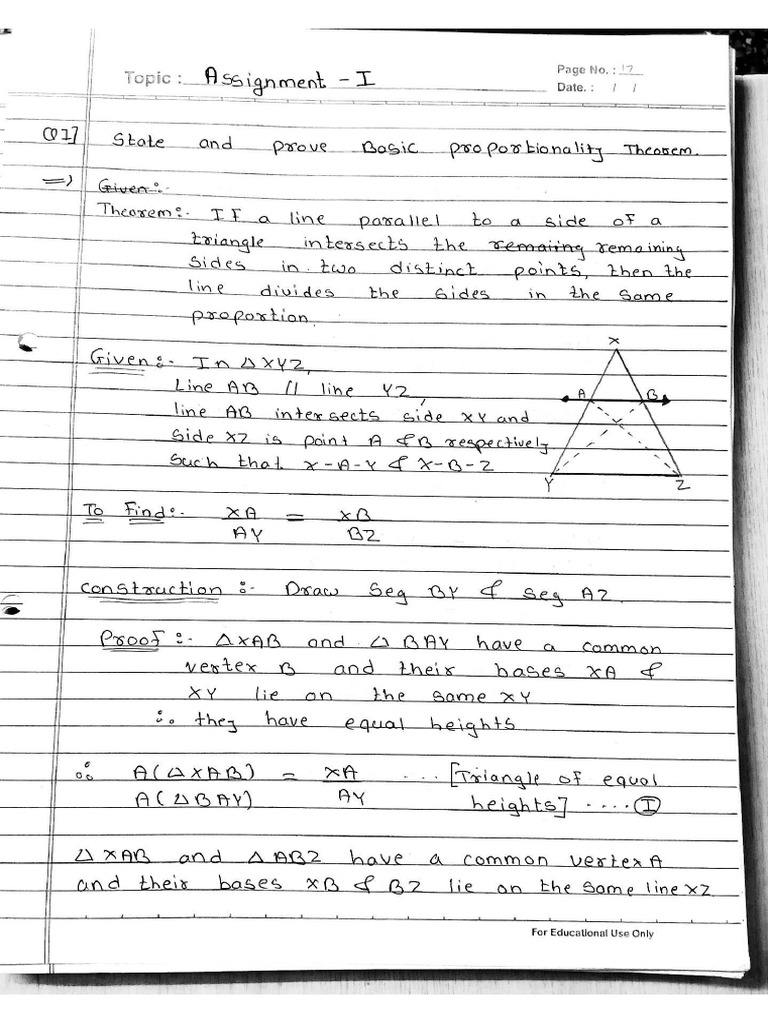 Topic : Assignment - I
Page No. : 17
Date. : / /
Q1] State and prove Basic proportionality Theorem.
=> Given:-
Theorem:- If a line parallel to a side of a
triangle intersects the remaiing remaining
sides in two distinct points, then the
line divides the sides in the same
proportion.
Given:- In △XYZ,
Line AB // line YZ,
line AB intersects side XY and
side XZ is point A & B respectively
Such that X-A-Y & X-B-Z
X
A B
Y Z
To Find:- XA = XB
AY BZ
Construction :- Draw seg BY & seg AZ.
Proof :- △XAB and △BAY have a common
vertex B and their bases XA &
XY lie on the same XY
∴ they have equal heights
∴ A(△XAB) = XA ... [Triangle of equal
A(△BAY) AY heights] .... I
△XAB and △ABZ have a common vertex A
and their bases XB & BZ lie on the same line XZ
For Educational Use Only